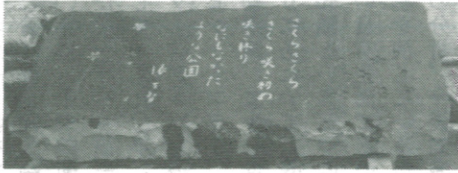 さくらさくら
さくら咲き初め
咲き終り
なにもなかった
ような公園